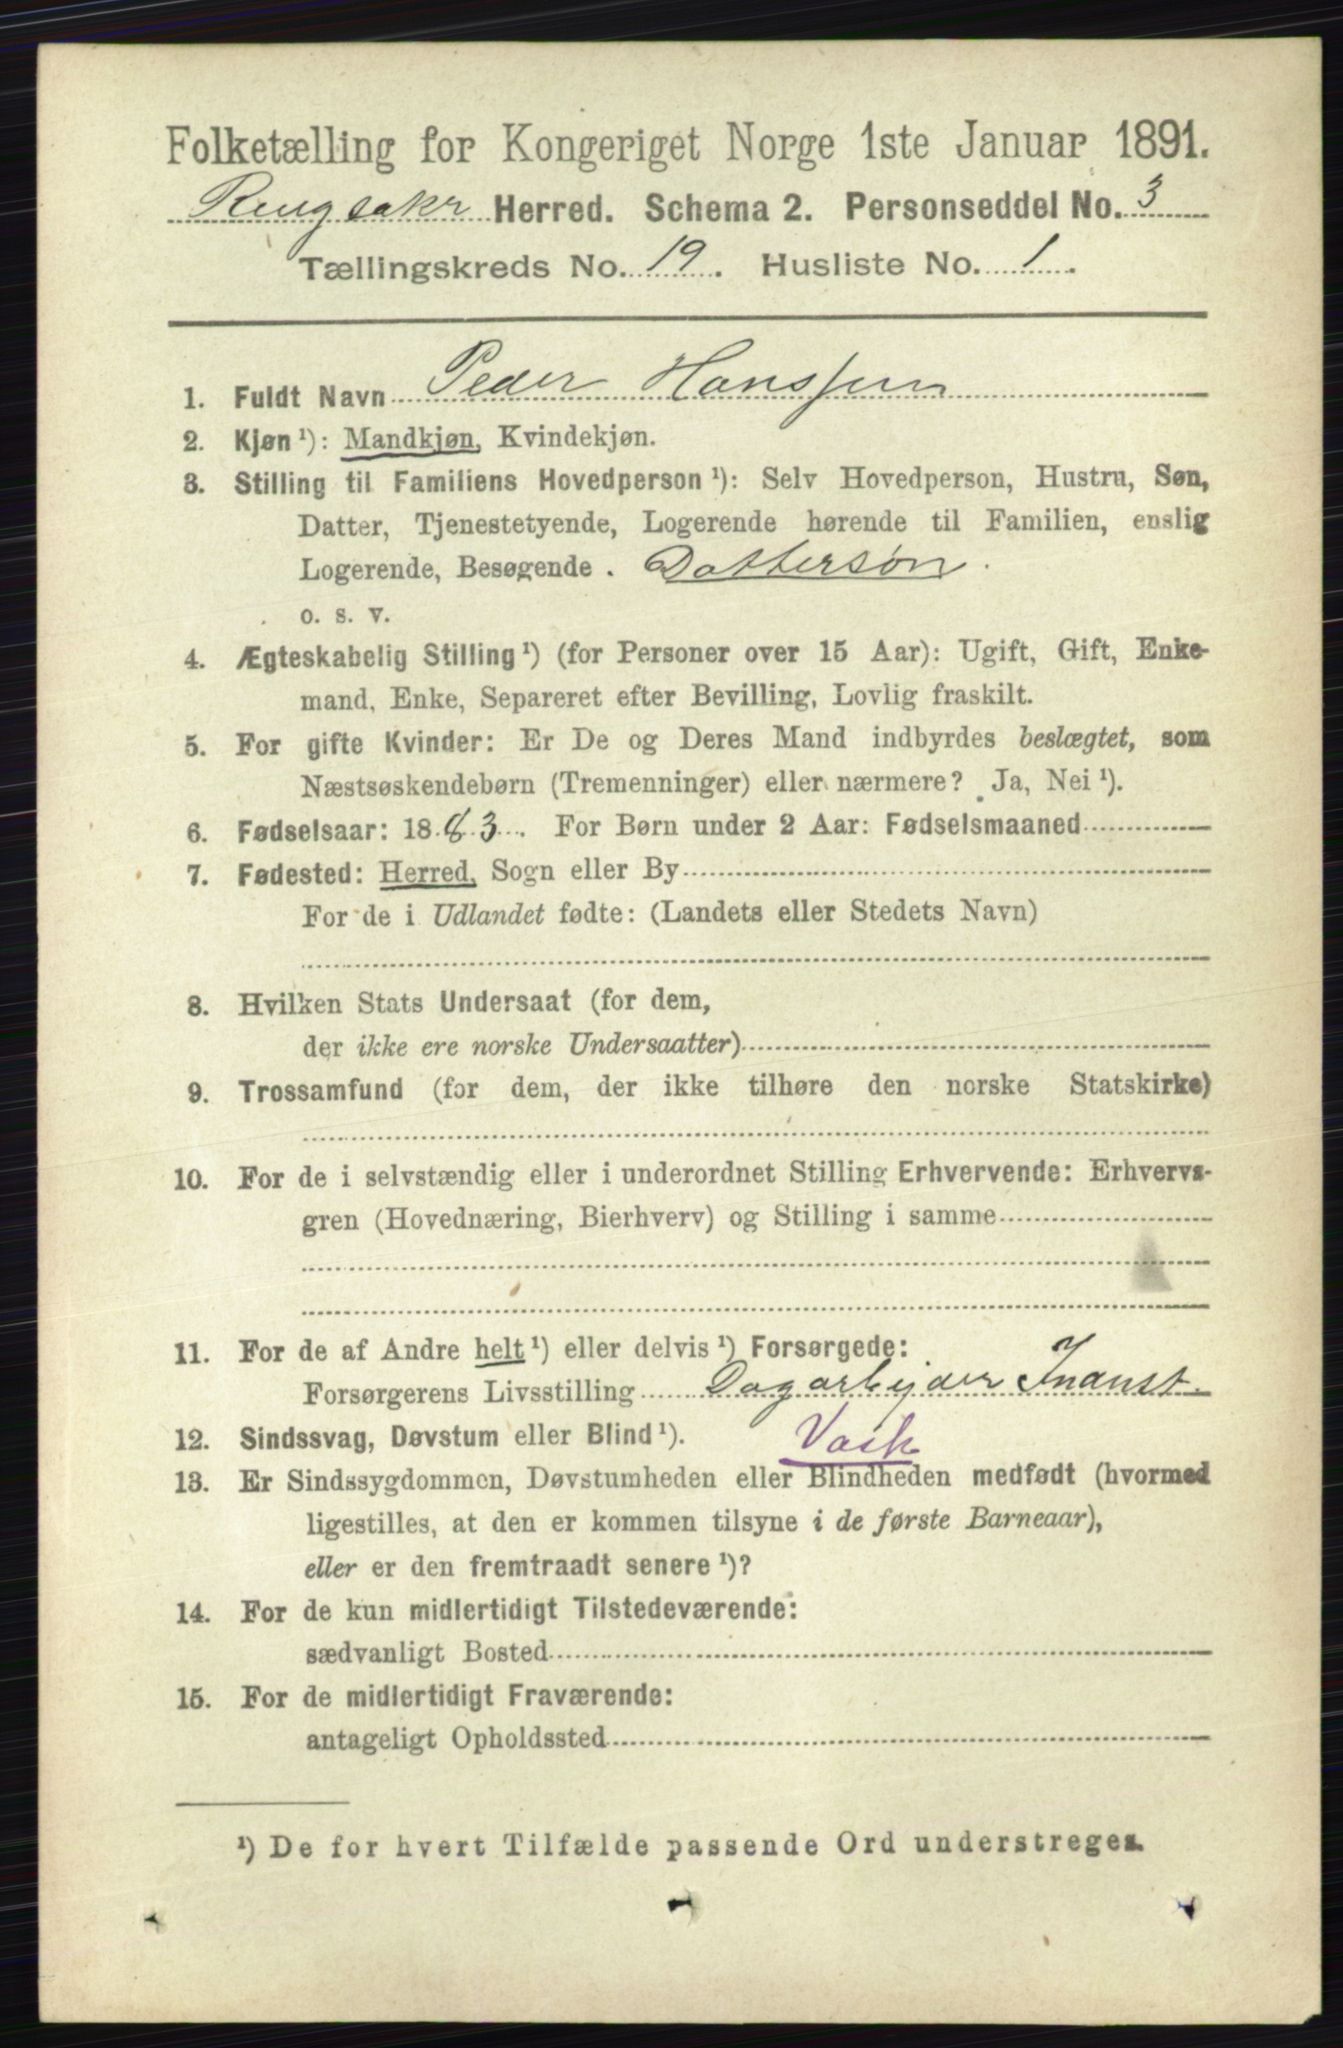 Folketælling for Kongeriget Norge 1ste Januar 1891.
Ringsaker Herred. Schema 2. Personseddel No. 3
Tællingskreds No. 19. Husliste No. 1.
1. Fuldt Navn Peder Hanssen
2. Kjøn ¹): Mandkjøn, Kvindekjøn.
3. Stilling til Familiens Hovedperson ¹): Selv Hovedperson, Hustru, Søn,
Datter, Tjenestetyende, Logerende hørende til Familien, enslig
Logerende, Besøgende. Dattersøn.
o. s. v.
4. Ægteskabelig Stilling ¹) (for Personer over 15 Aar): Ugift, Gift, Enke-
mand, Enke, Separeret efter Bevilling, Lovlig fraskilt.
5. For gifte Kvinder: Er De og Deres Mand indbyrdes beslægtet, som
Næstsøskendebørn (Tremenninger) eller nærmere? Ja, Nei ¹).
6. Fødselsaar: 1883. For Børn under 2 Aar: Fødselsmaaned
7. Fødested: Herred, Sogn eller By
For de i Udlandet fødte: (Landets eller Stedets Navn)
8. Hvilken Stats Undersaat (for dem,
der ikke ere norske Undersaatter)
9. Trossamfund (for dem, der ikke tilhøre den norske Statskirke)
10. For de i selvstændig eller i underordnet Stilling Erhvervende: Erhvervs-
gren (Hovednæring, Bierhverv) og Stilling i samme
11. For de af Andre helt ¹) eller delvis ¹) Forsørgede:
Forsørgerens Livsstilling Dagarbejder
12. Sindssvag, Døvstum eller Blind ¹). Vask
13. Er Sindssygdommen, Døvstumheden eller Blindheden medfødt (hvormed
ligestilles, at den er kommen tilsyne i de første Barneaar),
eller er den fremtraadt senere ¹)?
14. For de kun midlertidigt Tilstedeværende:
sædvanligt Bosted
15. For de midlertidigt Fraværende:
antageligt Opholdssted
¹) De for hvert Tilfælde passende Ord understreges.